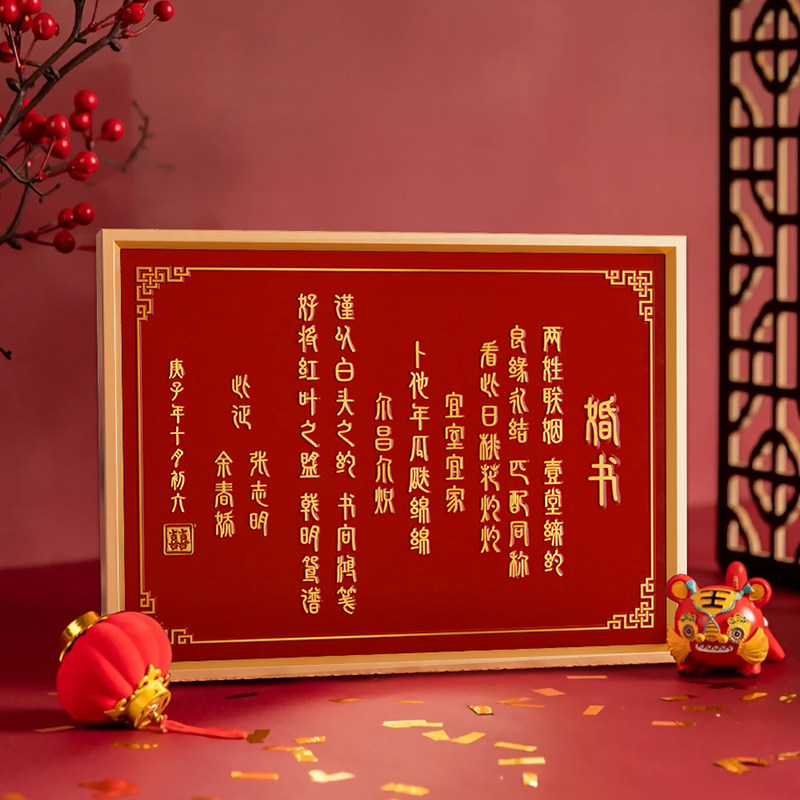 婚书
两姓联姻 壹堂缔约
良缘永结 匹配同称
看此日桃花灼灼
宜室宜家
卜他年瓜瓞绵绵
尔昌尔炽
谨以白头之约 书向鸿笺
好将红叶之盟 载明鸳谱
此证
张志明
余春娇
庚子年十月初六
囍
王